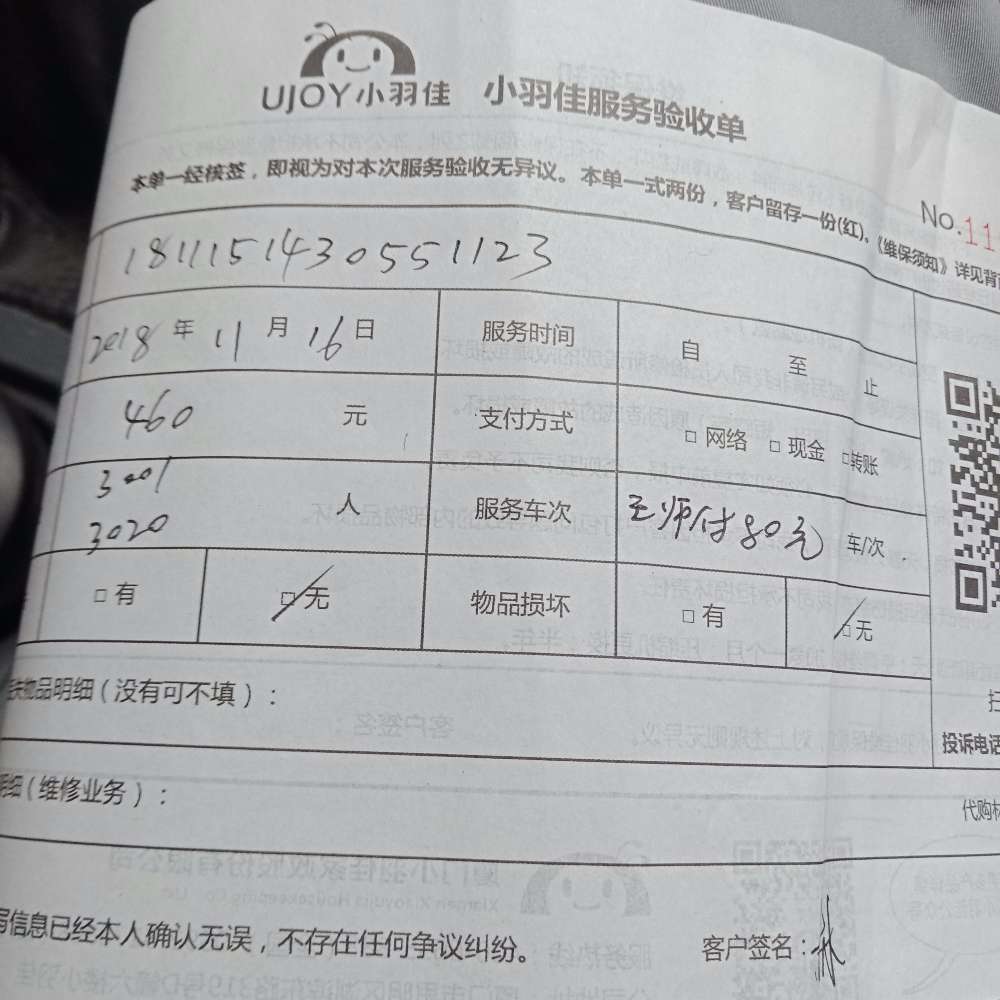 UJOY小羽佳 小羽佳服务验收单
本单一经核签，即视为对本次服务验收无异议。本单一式两份，客户留存一份(红)、《维保须知》详见背
No.11
1811151430551123
2018年11月16日 服务时间 自 至 止
460 元 支付方式 □网络 □现金 □转账
3001
3020 人 服务车次 王师付80元 车/次
□有 □无 物品损坏 □有 □无
物品明细（没有可不填）：
扫
投诉电话
明细（维修业务）：
代购材
信息已经本人确认无误，不存在任何争议纠纷。 客户签名：